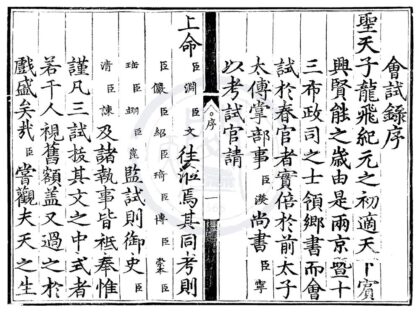 會試錄序
聖天子龍飛紀元之初適天下賓
興賢能之歲由是兩京暨十
三布政司之士領鄉書而會
試於春官者實倍於前太子
太傅掌部事臣濙尚書臣寧
以考試官請
序
上命臣調臣文徃涖焉其同考則
臣儼臣紹臣琦臣傳臣
清臣諫及諸執事皆祗奉惟
謹凡三試拔其文之中式者
若干人視舊額盖又過之於
戲盛矣哉臣嘗觀夫天之生